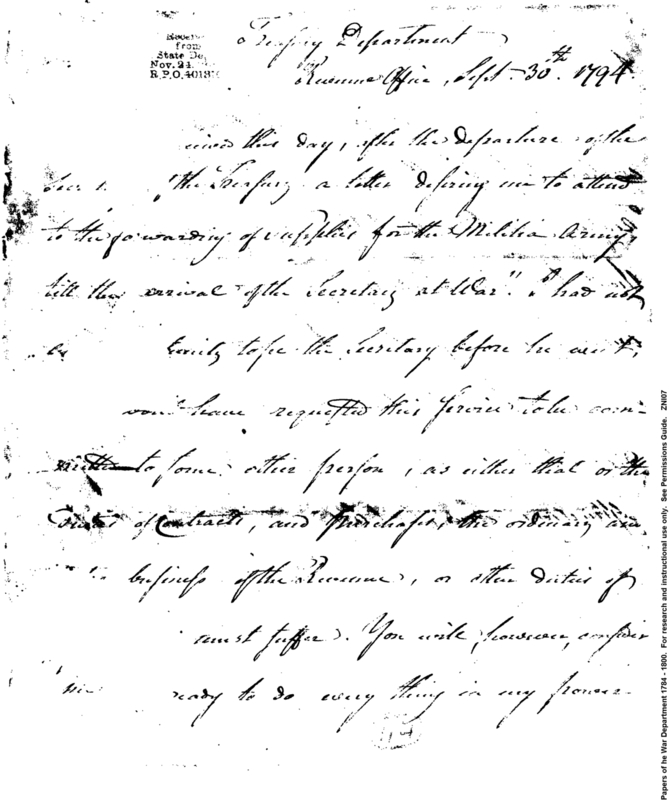 Received
from
State De
Nov. 24.
R.P.O. 4013
Treasury Department
Revenue Office, Sept. 30th. 1794
this day, after the departure of the
the Treasury a letter desiring me to attend
to the forwarding of supplies for the Militia Army
till the arrival of the Secretary at War". I had not
to see the Secretary before he went,
would have requested this Service to be com-
mitted to some other person, as either that or the
of Contracts, and Purchases, the ordinary
business of the Revenue, or other duties of
must suffer. You will, however, consider
me ready to do every thing in my power
Papers of he War Department 1784 - 1800. For research and instructional use only. See Permissions Guide. ZNI07